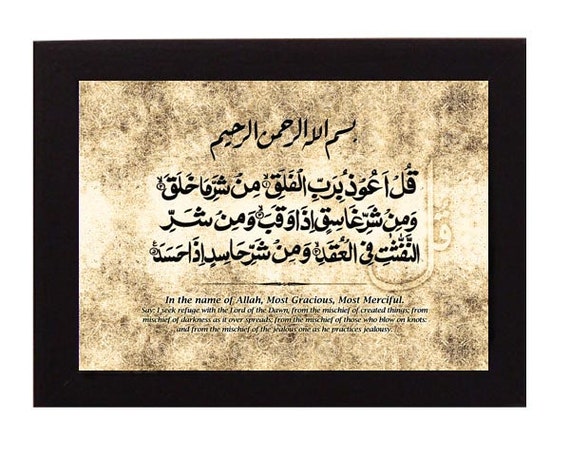 بسم الله الرحمن الرحيم
قُلْ اَعُوْذُ بِرَبِّ الْفَلَقِ ۙ۱ مِنْ شَرِّ مَا خَلَقَ ۙ۲
وَمِنْ شَرِّ غَاسِقٍ اِذَا وَقَبَ ۙ۳ وَمِنْ شَرِّ
النَّفّٰثٰتِ فِي الْعُقَدِ ۙ۴ وَمِنْ شَرِّ حَاسِدٍ اِذَا حَسَدَ ۵
In the name of Allah, Most Gracious, Most Merciful.
Say: I seek refuge with the Lord of the Dawn, from the mischief of created things; from
mischief of darkness as it over spreads; from the mischief of those who blow on knots:
and from the mischief of the jealous one as he practices jealousy.